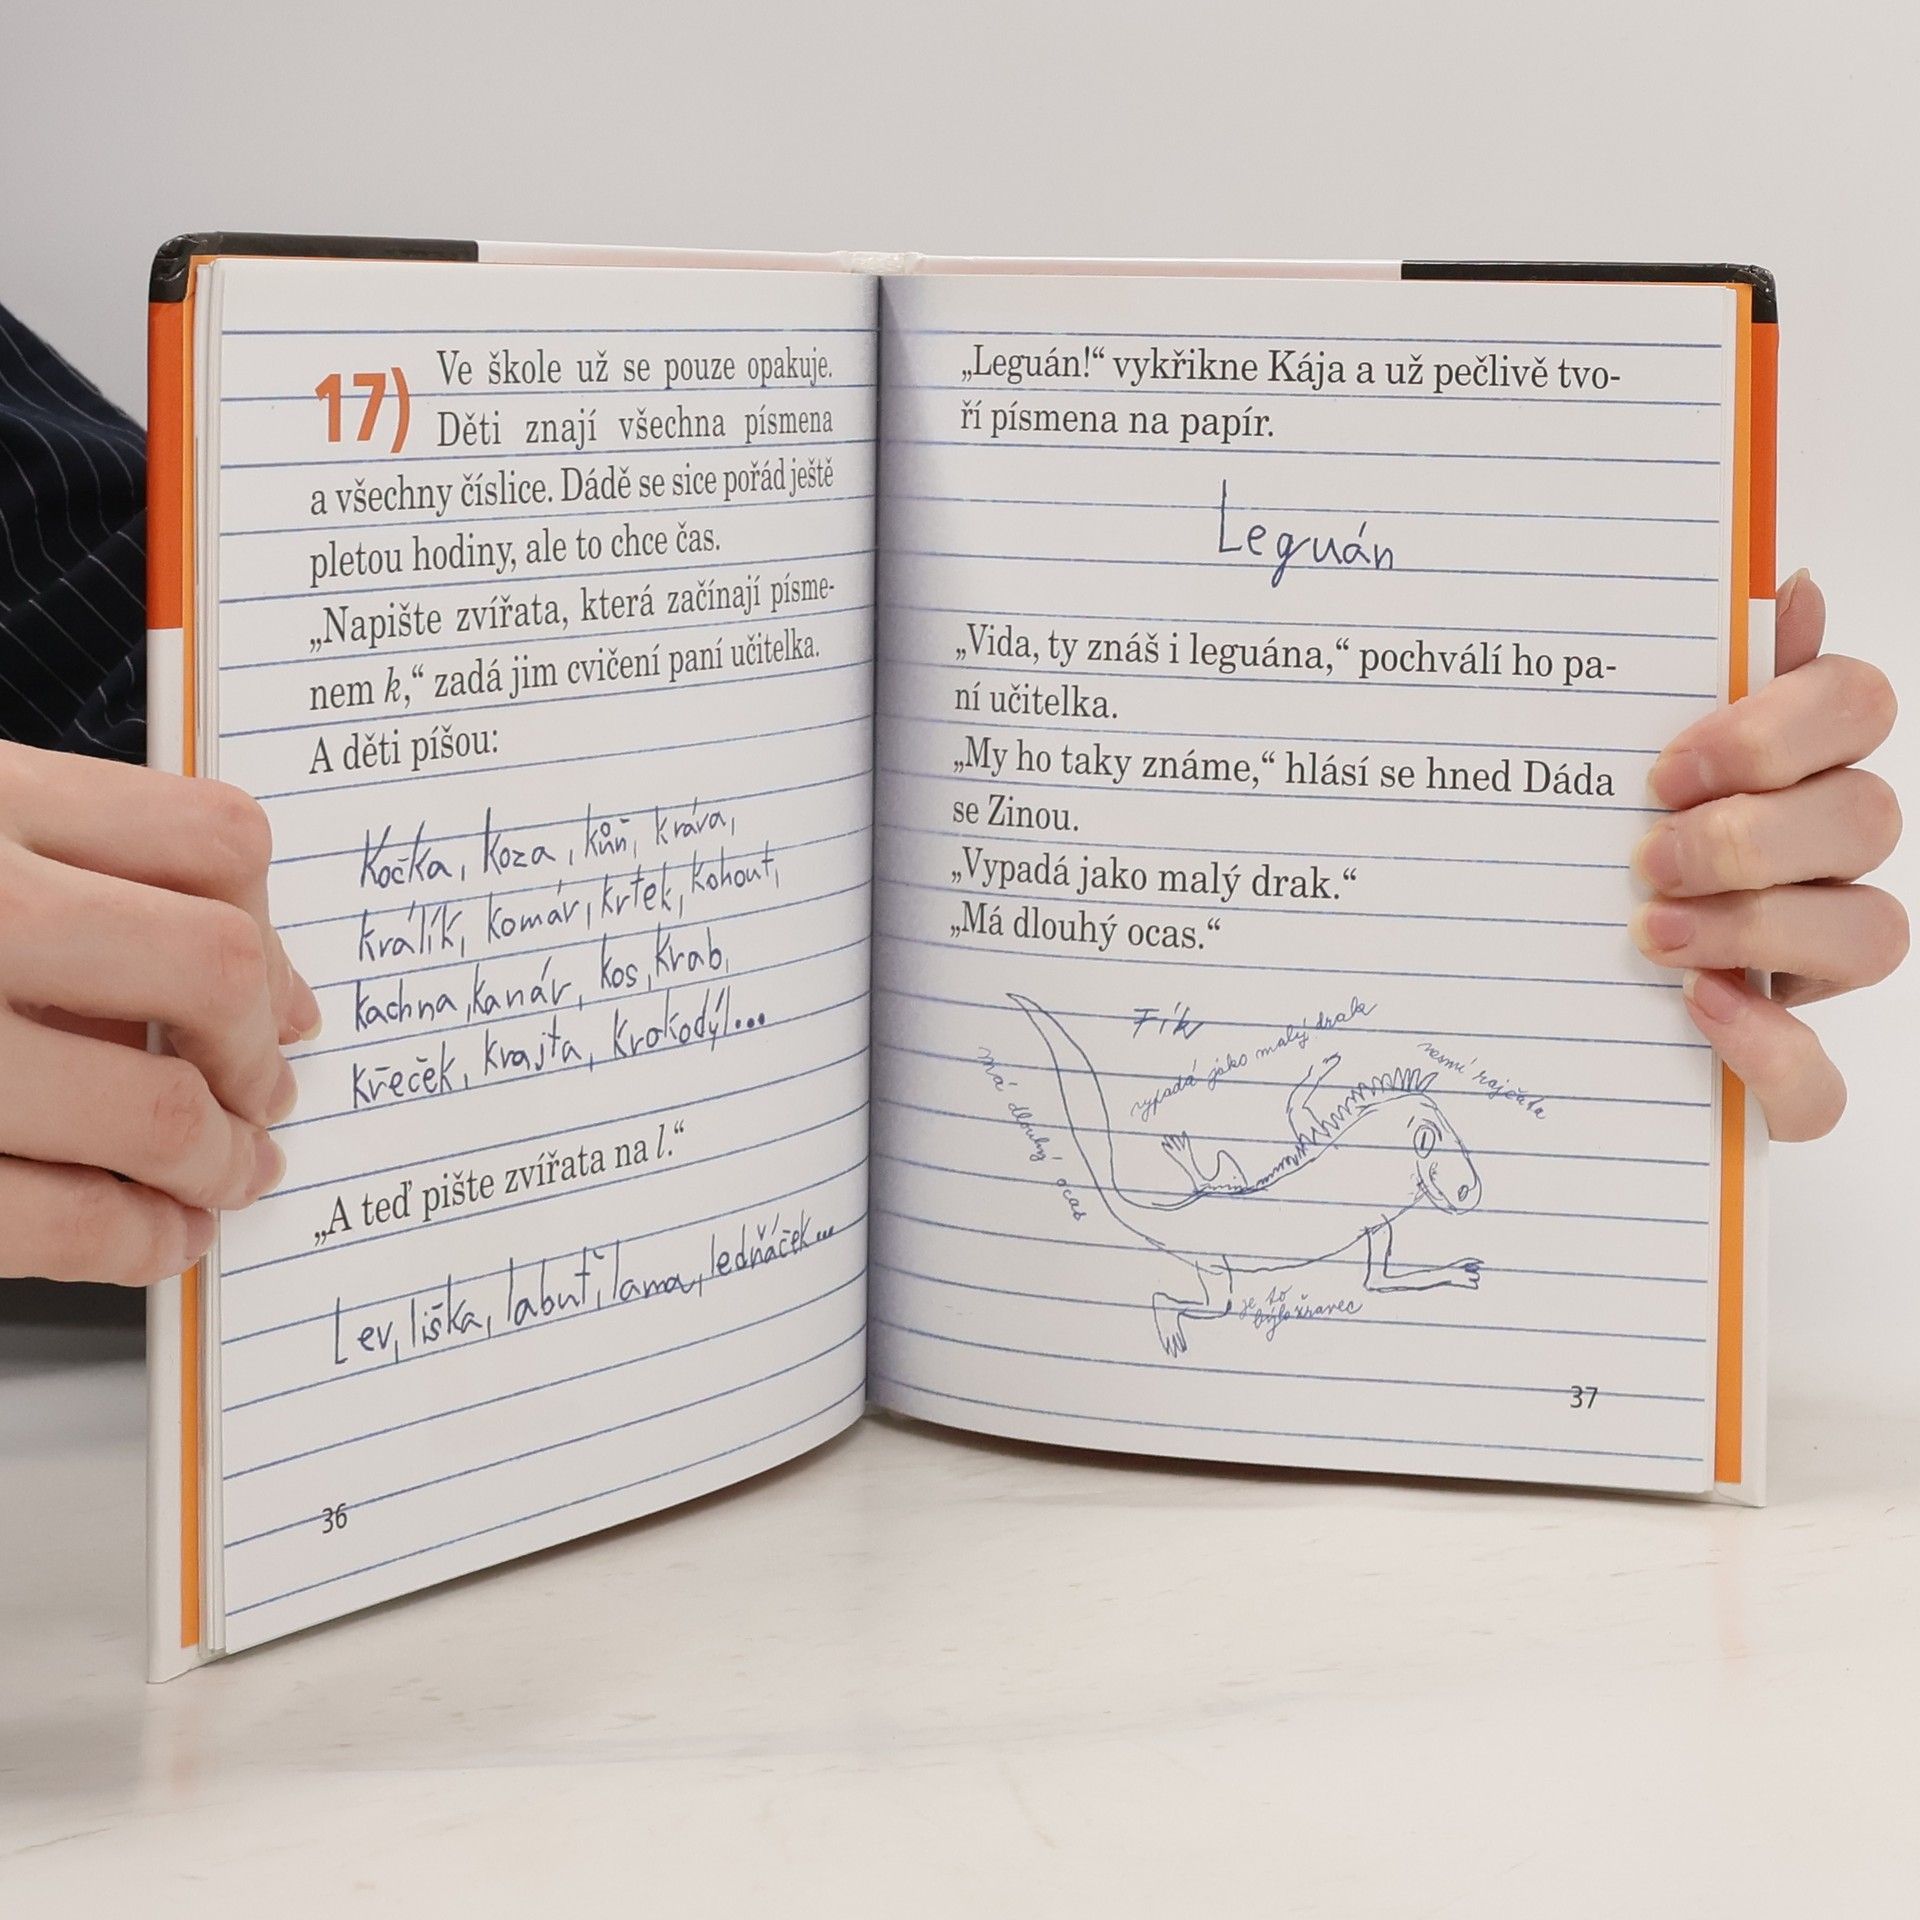 17) Ve škole už se pouze opakuje.
Děti znají všechna písmena
a všechny číslice. Dádě se sice pořád ještě
pletou hodiny, ale to chce čas.
„Napište zvířata, která začínají písme-
nem k,“ zadá jim cvičení paní učitelka.
A děti píšou:
Kočka, koza, kůň, kráva,
králík, komár, krtek, kohout,
kachna, kanár, kos, krab,
křeček, krajta, krokodýl...
„A teď pište zvířata na l.“
Lev, liška, labuť, lama, ledňáček...
36
„Leguán!“ vykřikne Kája a už pečlivě tvo-
ří písmena na papír.
Leguán
„Vida, ty znáš i leguána,“ pochválí ho pa-
ní učitelka.
„My ho taky známe,“ hlásí se hned Dáda
se Zinou.
„Vypadá jako malý drak.“
„Má dlouhý ocas.“
Fík
vypadá jako malý drak
nesmí rajčata
Má dlouhý ocas
je to
býložravec
37